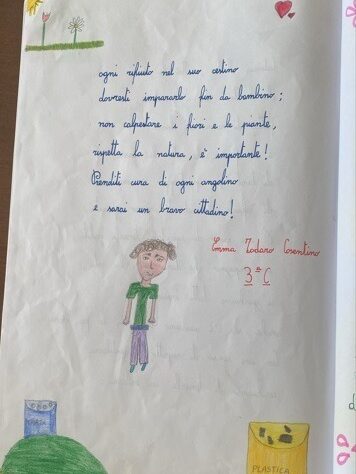 ogni rifiuto nel suo cestino
dovresti impararlo fin da bambino;
non calpestare i fiori e le piante,
rispetta la natura, è importante!
Prenditi cura di ogni angolino
e sarai un bravo cittadino!
Emma Todaro Cosentino
3ª C
PLASTICA